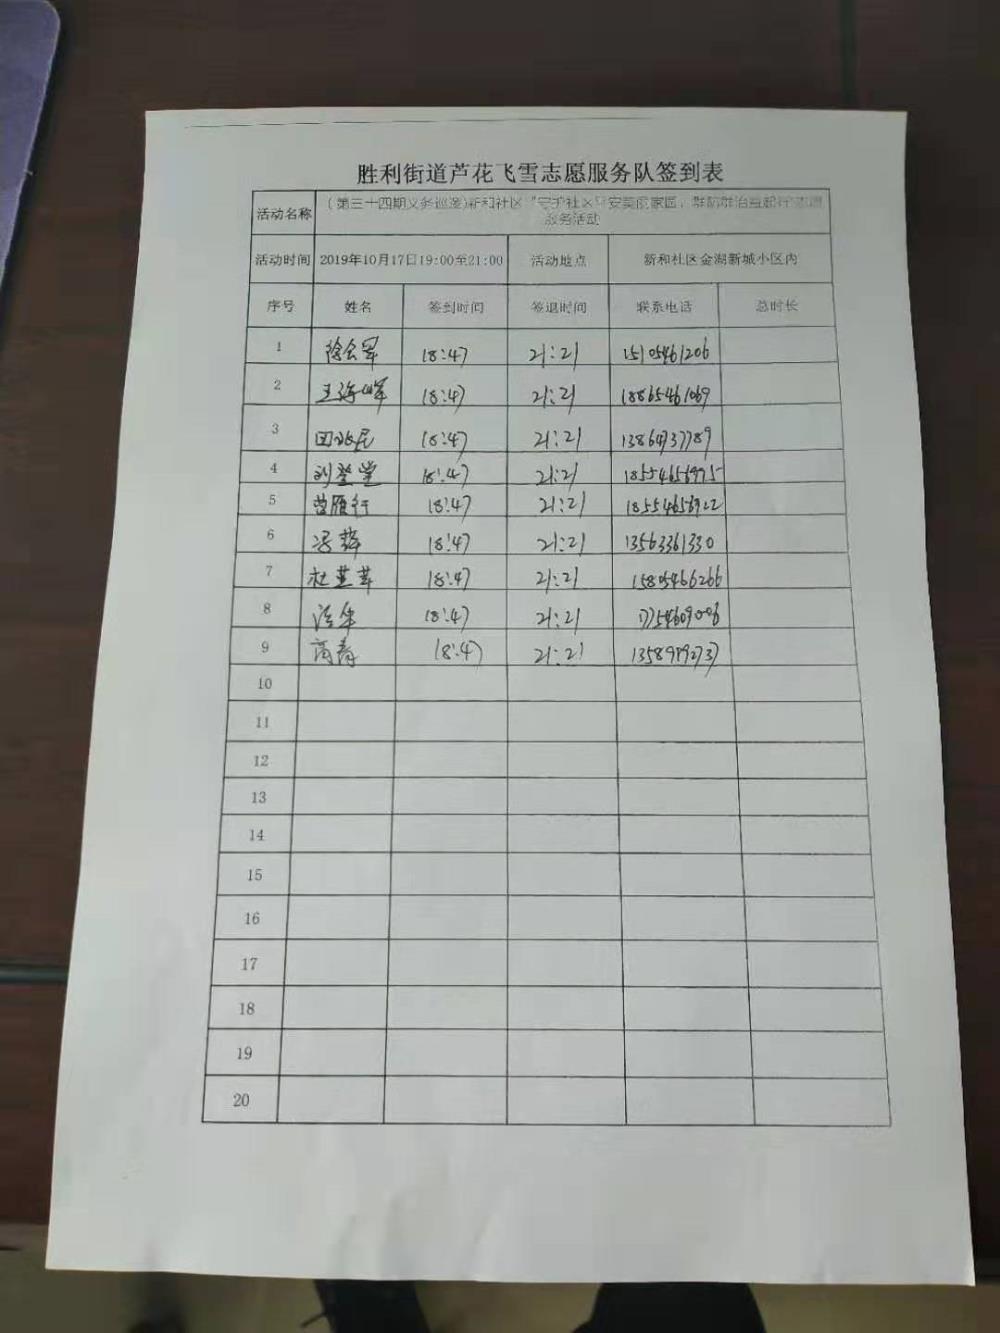 胜利街道芦花飞雪志愿服务队签到表
活动名称 (第三十四期义务巡逻)新和社区"守护社区平安美丽家园,群防群治益起行"志愿
服务活动
活动时间 2019年10月17日19:00至21:00 活动地点 新和社区金湖新城小区内
序号 姓名 签到时间 签退时间 联系电话 总时长
1 徐会军 18:47 21:21 15105461206
2 王海峰 18:47 21:21 18865461069
3 田 民 18:47 21:21 13864737789
4 刘登堂 18:47 21:21 18554656975
5 曹雁行 18:47 21:21 18554656922
6 冯静 18:47 21:21 13563361330
7 杜 18:47 21:21 15805466266
8 18:47 21:21 17754609096
9 高青 18:47 21:21
10
11
12
13
14
15
16
17
18
19
20